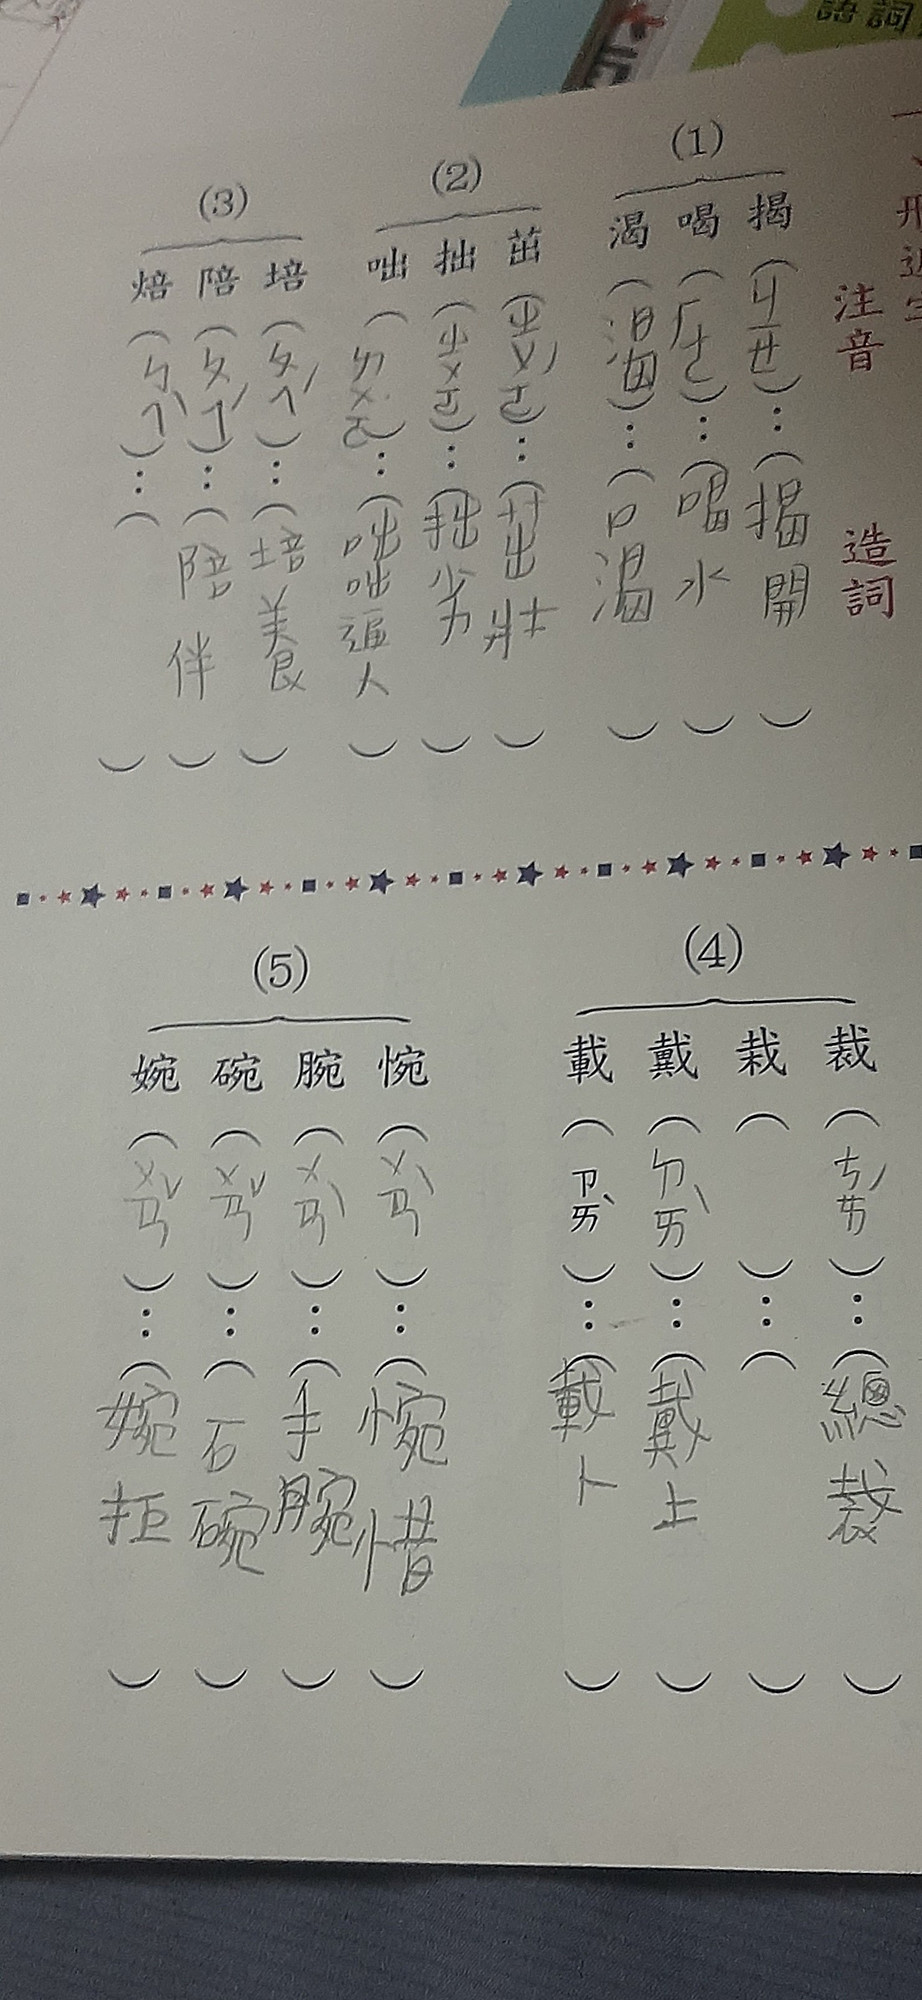 語詞
形近字
注音
造詞
(1)
揭(ㄐㄧㄝ):(揭開)
喝(ㄏㄜ):(喝水)
渴(渴):(口渴)
(2)
茁(ㄓㄨㄛˊ):(茁壯)
拙(ㄓㄨㄛ):(拙劣)
咄(ㄉㄨㄛ):(咄咄逼人)
(3)
培(ㄆㄟˊ):(培養)
陪(ㄆㄟˊ):(陪伴)
焙(ㄅㄟˋ):( )
(4)
裁(ㄘㄞˊ):(總裁)
栽( ):( )
戴(ㄉㄞˋ):(戴上)
載(ㄗㄞˋ):(載卜)
(5)
惋(ㄨㄢˋ):(惋惜)
腕(ㄨㄢˋ):(手腕)
碗(ㄨㄢˇ):(石碗)
婉(ㄨㄢˇ):(婉拒)